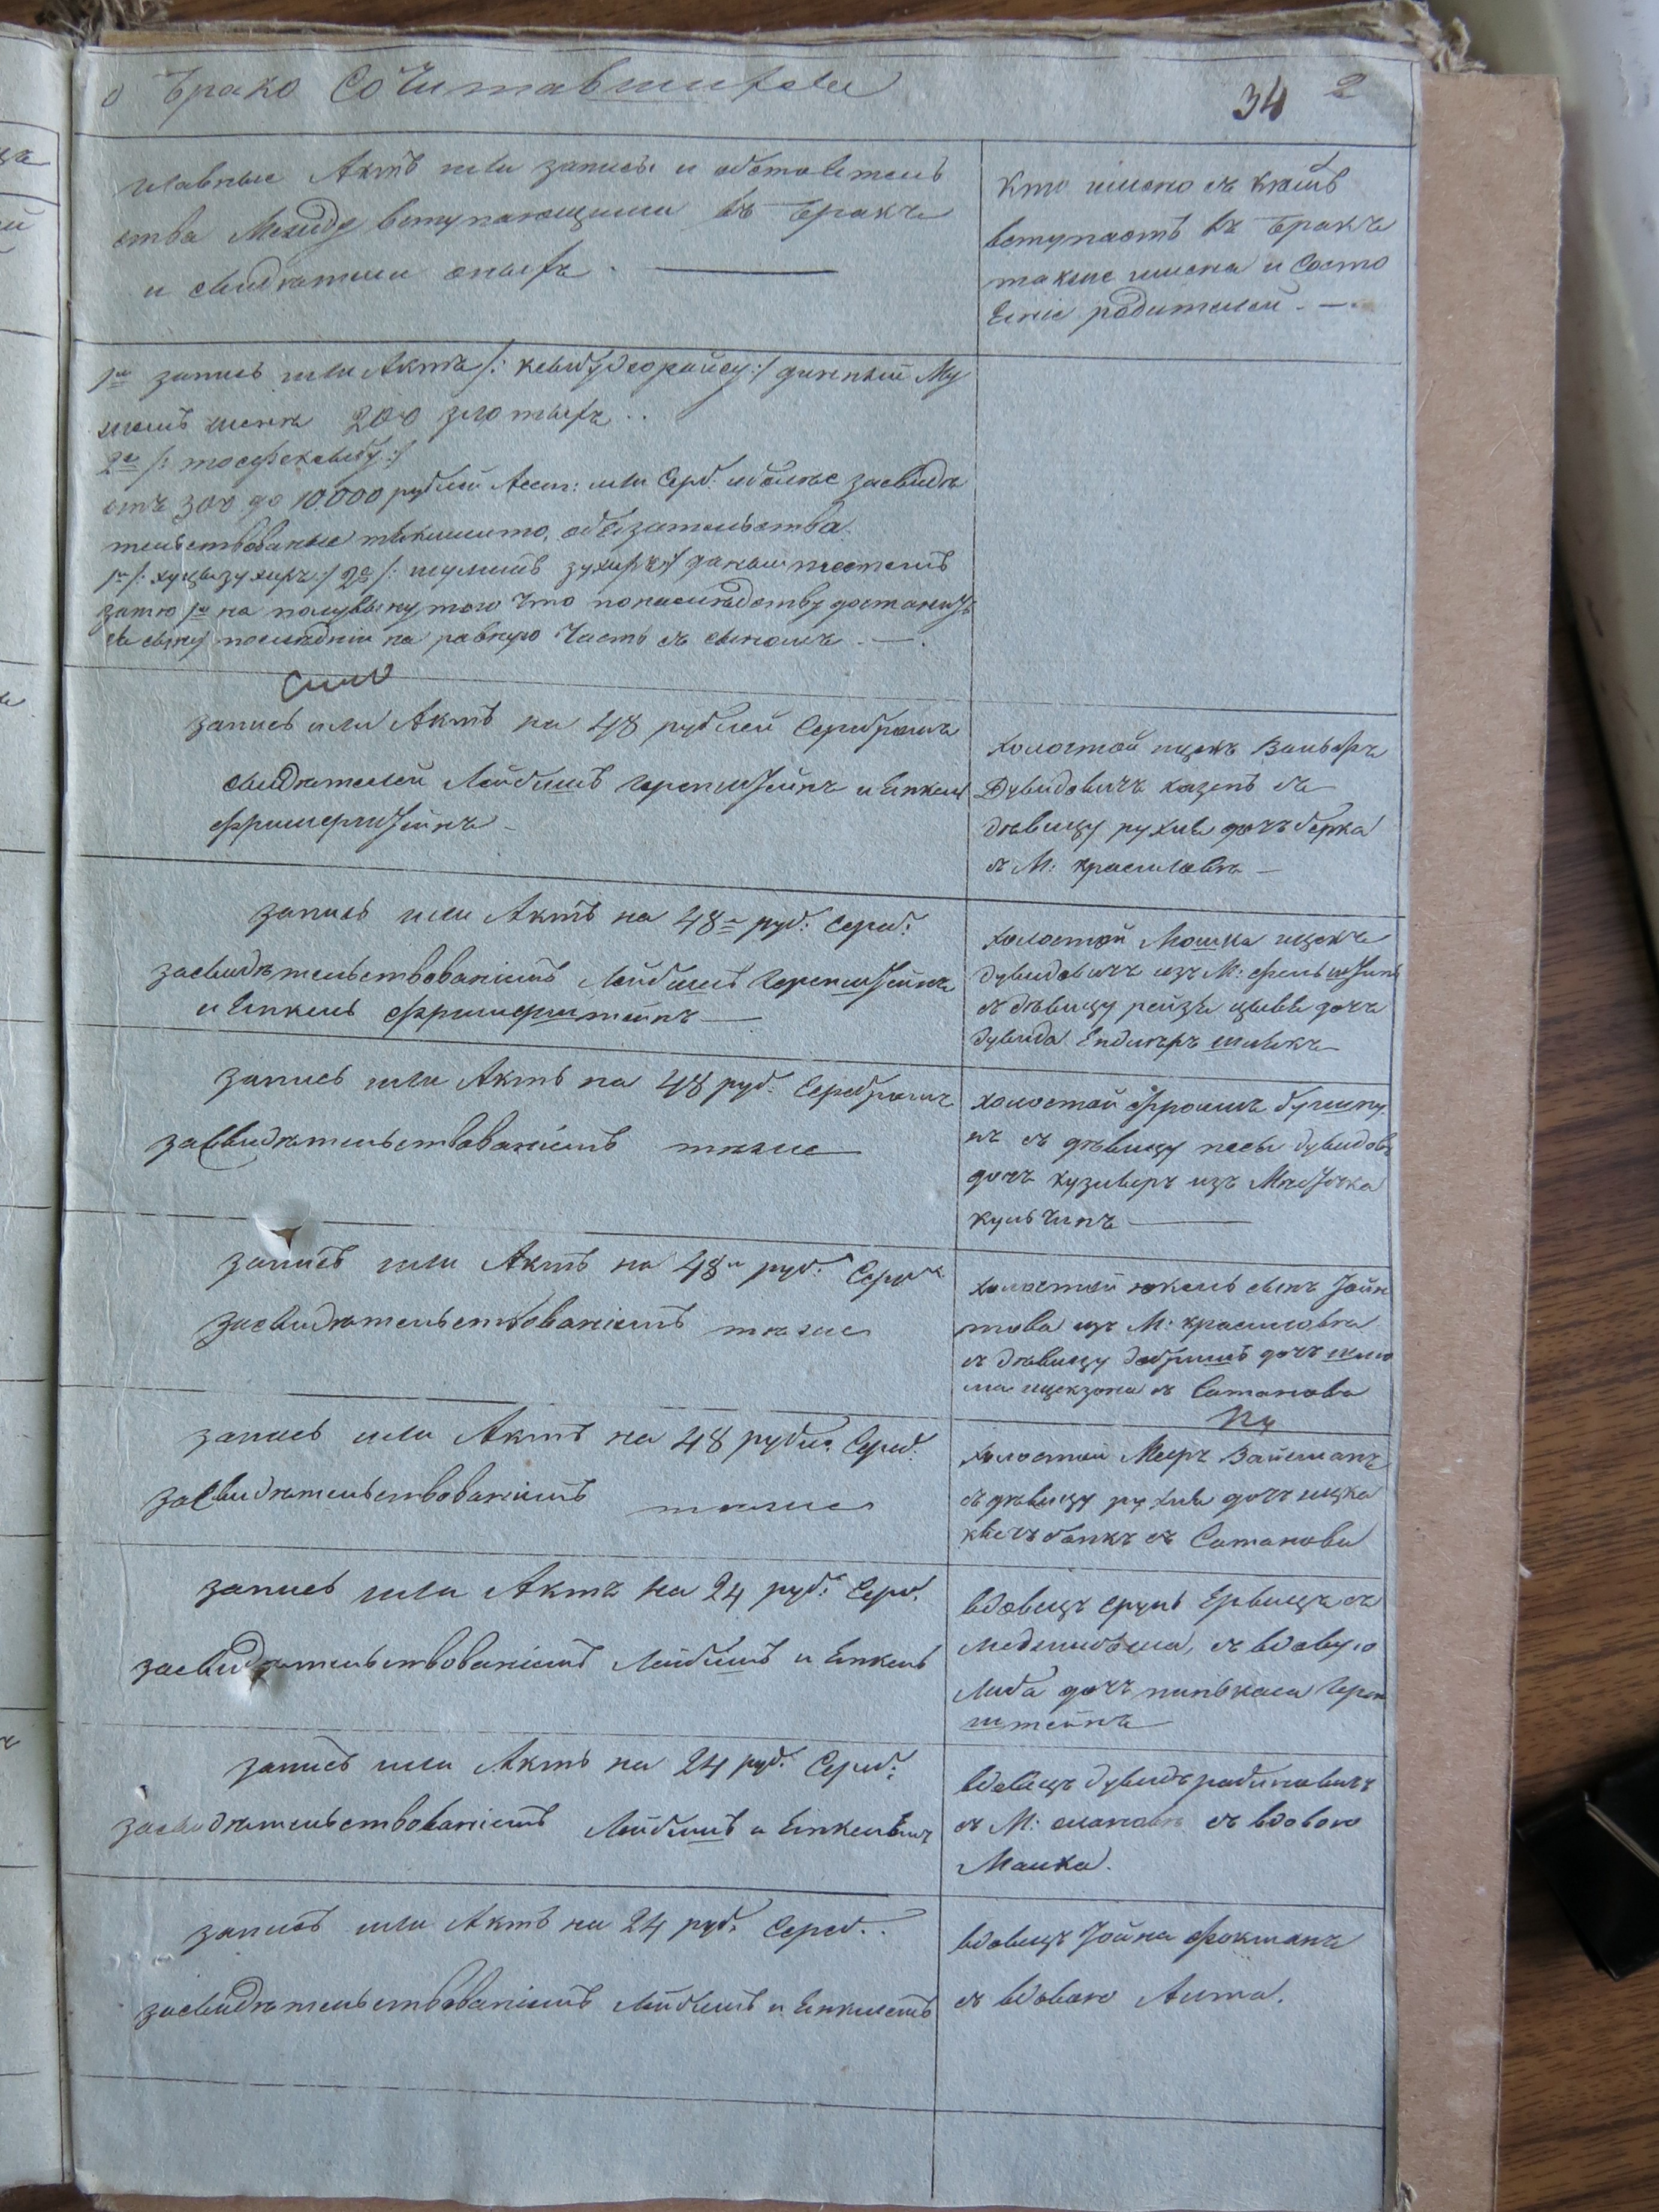 о Брако Сочитавшихся
34 2
главные Актъ или записи и обстоятель
ства Между вступающими въ Бракъ
и свидѣтели оныхъ. —
Кто имено съ кѣмъ
вступаетъ въ Бракъ
такъже имена и Состо
яніе родителей. —
1я запись или Актъ /: :/ Му
жемъ женѣ 200 злотыхъ..
2я /: :/
отъ 300 до 10000 рублей Асси: или Сереб. иболѣе засвидѣ
тельствованые обязательства.
1я /: :/ 2я /: :/ данъ тестемъ
зятю 1я на половыну того что понаслѣдству достанеть
ся сыну послѣдній на равную Часть съ сыномъ. —.
Сило
запись или Актъ на 48 рублей Серебромъ
свидѣтелей Лейбишъ Горенштейнъ и Янкель
Фришерштейнъ —
холостой ицекъ Вольфъ
Дувидовичъ казенъ съ
дѣвицу рухля дочъ берка
съ М: красиловъ —
запись или Актъ на 48я руб: Сереб:
засвидѣтельствованіемъ Лейбишъ Горенштейнъ
и Янкель Фришерштейнъ —
холостой Мошка ицекъ
дувидовичъ изъ М: Фельштинъ
съ дѣвицу рейзя цывья дочъ
дувида
запись или Актъ на 48 руб: Серебромъ
засвидѣтельствованіемъ тѣже
холостой Фроимъ
съ дѣвицу песы дувидовъ
дочъ кузиверъ изъ Мѣстечка
кульчинъ —
запись или Актъ на 48я руб: Сереб:
засвидѣтельствованіемъ тѣже
холостой юкель сынъ Іойн
това изъ М: красиловка
съ дѣвицу добришъ дочъ шлио
ма ицекзона съ Сатанова
запись или Актъ на 48 рубле. Сереб.
засвидѣтельствованіемъ тѣже
холостой Мееръ Вайсманъ
съ дѣвицу рухля дочъ ицка
съ Сатанова
запись или Актъ на 24 руб: Сереб.
засвидѣтельствованіемъ Лейбишъ и Янкель
вдовецъ сруль съ
Меджибожа, съ вдовую
Либа дочъ пинькаса Горен
штейнъ
запись или Актъ на 24 руб: Сереб:
засвидѣтельствованіемъ Лейбишъ и Янкелемъ
вдовецъ дувидъ рабиновичъ
съ М: съ вдовою
Малка.
запись или Актъ на 24 руб: Сереб:
засвидѣтельствованіемъ Лейбишъ и Янкелемъ
вдовецъ Іойна Фокманъ
съ вдовою Алта.